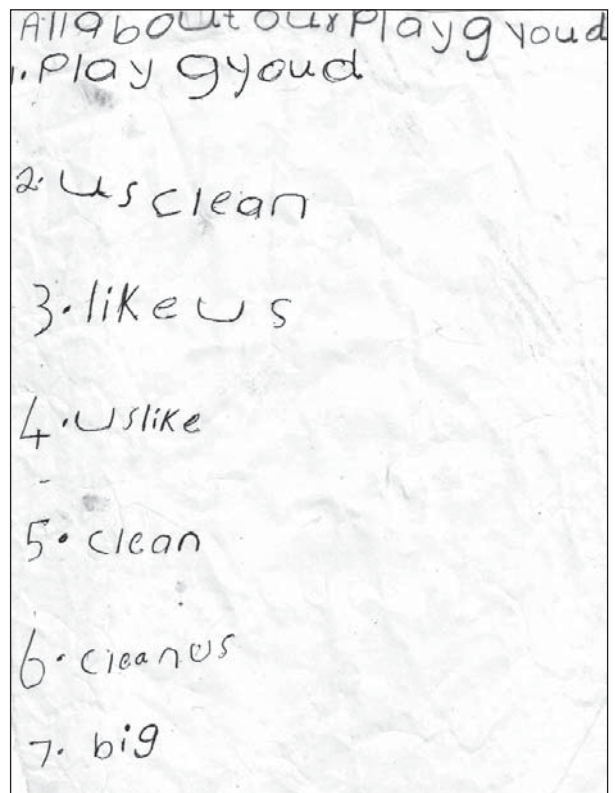 All about our Playgyoud
1. Play gyoud
2. us clean
3. like us
4. us like
5. clean
6. clean us
7. big